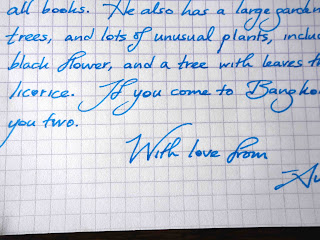 all books. He also has a large garden
trees, and lots of unusual plants, inclu
black flower, and a tree with leaves th
licorice. If you come to Bangko
you two.
With love from
Au